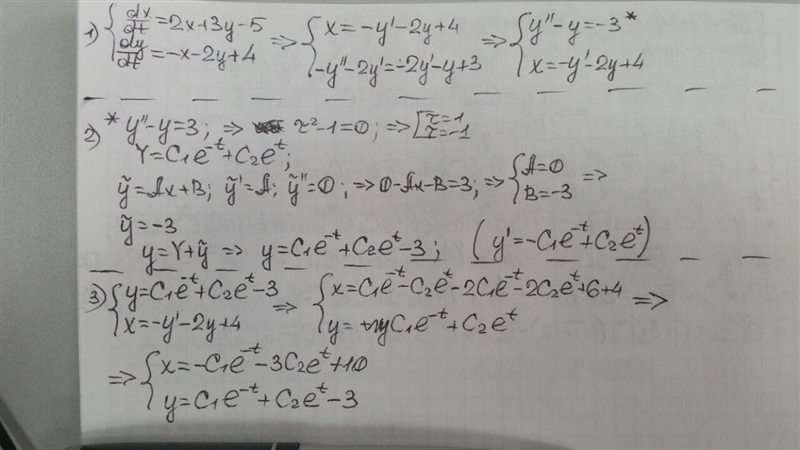 1) { dx/dt = 2x+3y-5 => { x = -y'-2y+4 => { y''-y = -3*
dy/dt = -x-2y+4 -y''-2y' = -2y'-y+3 x = -y'-2y+4
2) * y''-y=3; => τ²-1=0; => [ τ=1
τ=-1
Y = C₁e^-t + C₂e^t;
ỹ = Ax+B; ỹ' = A; ỹ'' = 0; => 0-Ax-B=3; => { A=0 =>
B=-3
ỹ = -3
y = Y+ỹ => y = C₁e^-t + C₂e^t - 3; (y' = -C₁e^-t + C₂e^t)
3) { y = C₁e^-t + C₂e^t - 3 => { x = C₁e^-t - C₂e^t - 2C₁e^-t - 2C₂e^t + 6 + 4 =>
x = -y'-2y+4 y = C₁e^-t + C₂e^t
=> { x = -C₁e^-t - 3C₂e^t + 10
y = C₁e^-t + C₂e^t - 3